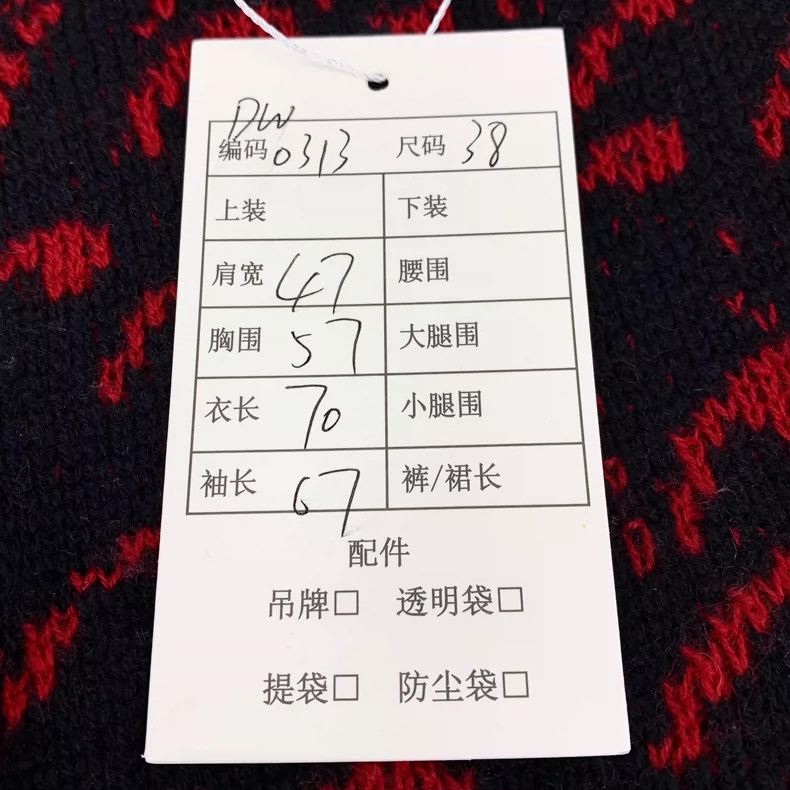 DW
编码 0313 尺码 38
上装 下装
肩宽 47 腰围
胸围 57 大腿围
衣长 70 小腿围
袖长 67 裤/裙长
配件
吊牌□ 透明袋□
提袋□ 防尘袋□